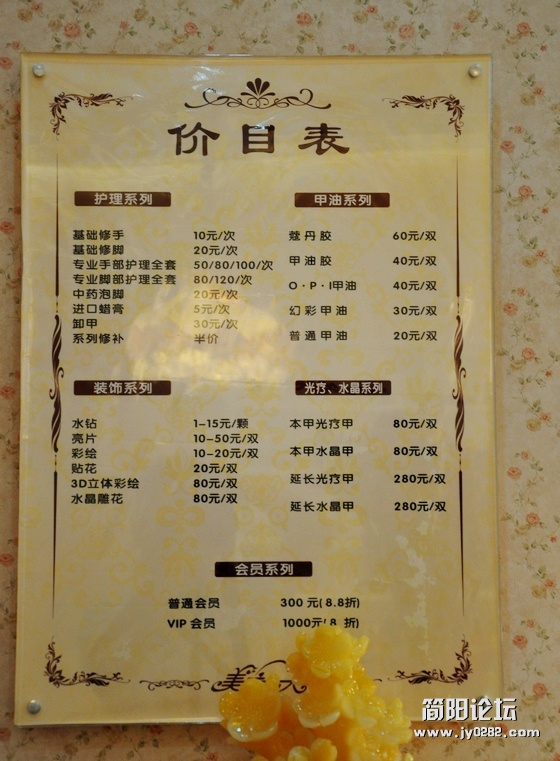 价目表
护理系列
基础修手 10元/次
基础修脚 20元/次
专业手部护理全套 50/80/100/次
专业脚部护理全套 80/120/次
中药泡脚 20元/次
进口蜡膏 5元/次
卸甲 30元/次
系列修补 半价
甲油系列
蔻丹胶 60元/双
甲油胶 40元/双
O·P·I甲油 40元/双
幻彩甲油 30元/双
普通甲油 20元/双
装饰系列
水钻 1-15元/颗
亮片 10-50元/双
彩绘 10-20元/双
贴花 20元/双
3D立体彩绘 80元/双
水晶雕花 80元/双
光疗、水晶系列
本甲光疗甲 80元/双
本甲水晶甲 80元/双
延长光疗甲 280元/双
延长水晶甲 280元/双
会员系列
普通会员 300元(8.8折)
VIP会员 1000元(8 折)
美
简阳论坛
www.jy0282.com